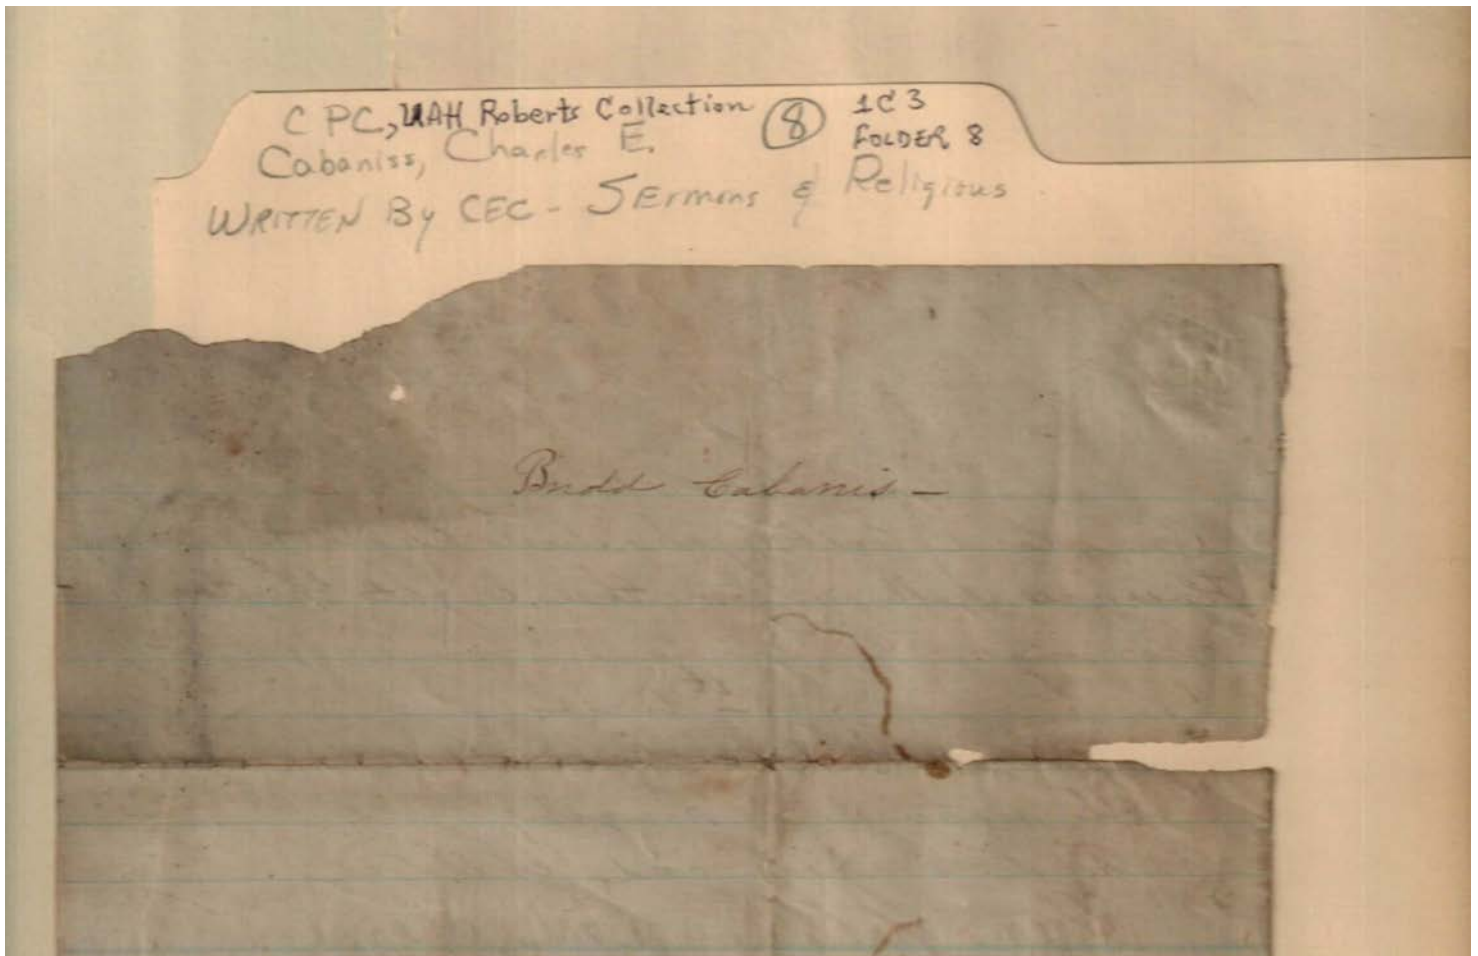 CPC, UAH Roberts Collection ⑧ 1C3
Cabaniss, Charles E. FOLDER 8
WRITTEN By CEC - SErmons & Religious
Budd Cabanis -